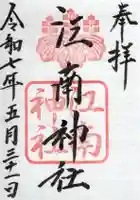 奉拝
江南神社
令和七年五月三十一日
江南
神社